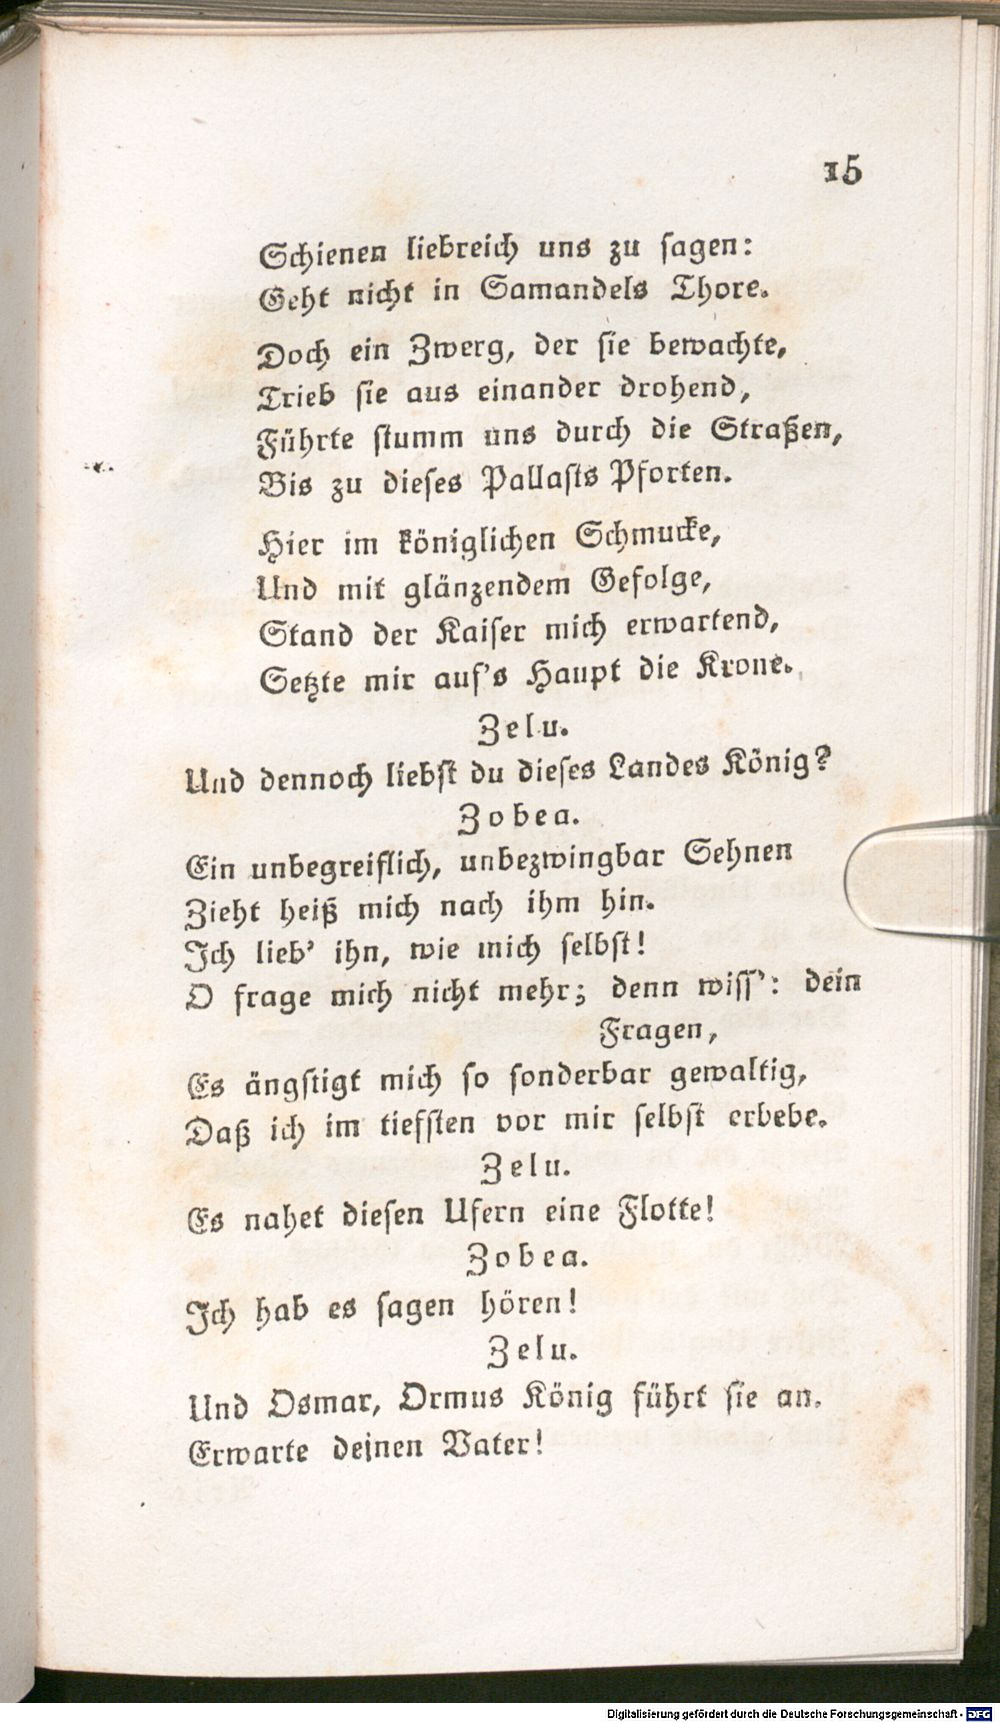 15
Schienen liebreich uns zu sagen:
Geht nicht in Samandels Thore.
Doch ein Zwerg, der sie bewachte,
Trieb sie aus einander drohend,
Führte stumm uns durch die Straßen,
Bis zu dieses Pallasts Pforten.
Hier im königlichen Schmucke,
Und mit glänzendem Gefolge,
Stand der Kaiser mich erwartend,
Setzte mir auf's Haupt die Krone.
Zelu.
Und dennoch liebst du dieses Landes König?
Zobea.
Ein unbegreiflich, unbezwingbar Sehnen
Zieht heiß mich nach ihm hin.
Ich lieb' ihn, wie mich selbst!
O frage mich nicht mehr; denn wiss': dein
Fragen,
Es ängstigt mich so sonderbar gewaltig,
Daß ich im tiefsten vor mir selbst erbebe.
Zelu.
Es nahet diesen Ufern eine Flotte!
Zobea.
Ich hab es sagen hören!
Zelu.
Und Osmar, Ormus König führt sie an.
Erwarte deinen Vater!
Digitalisierung gefördert durch die Deutsche Forschungsgemeinschaft - DFG